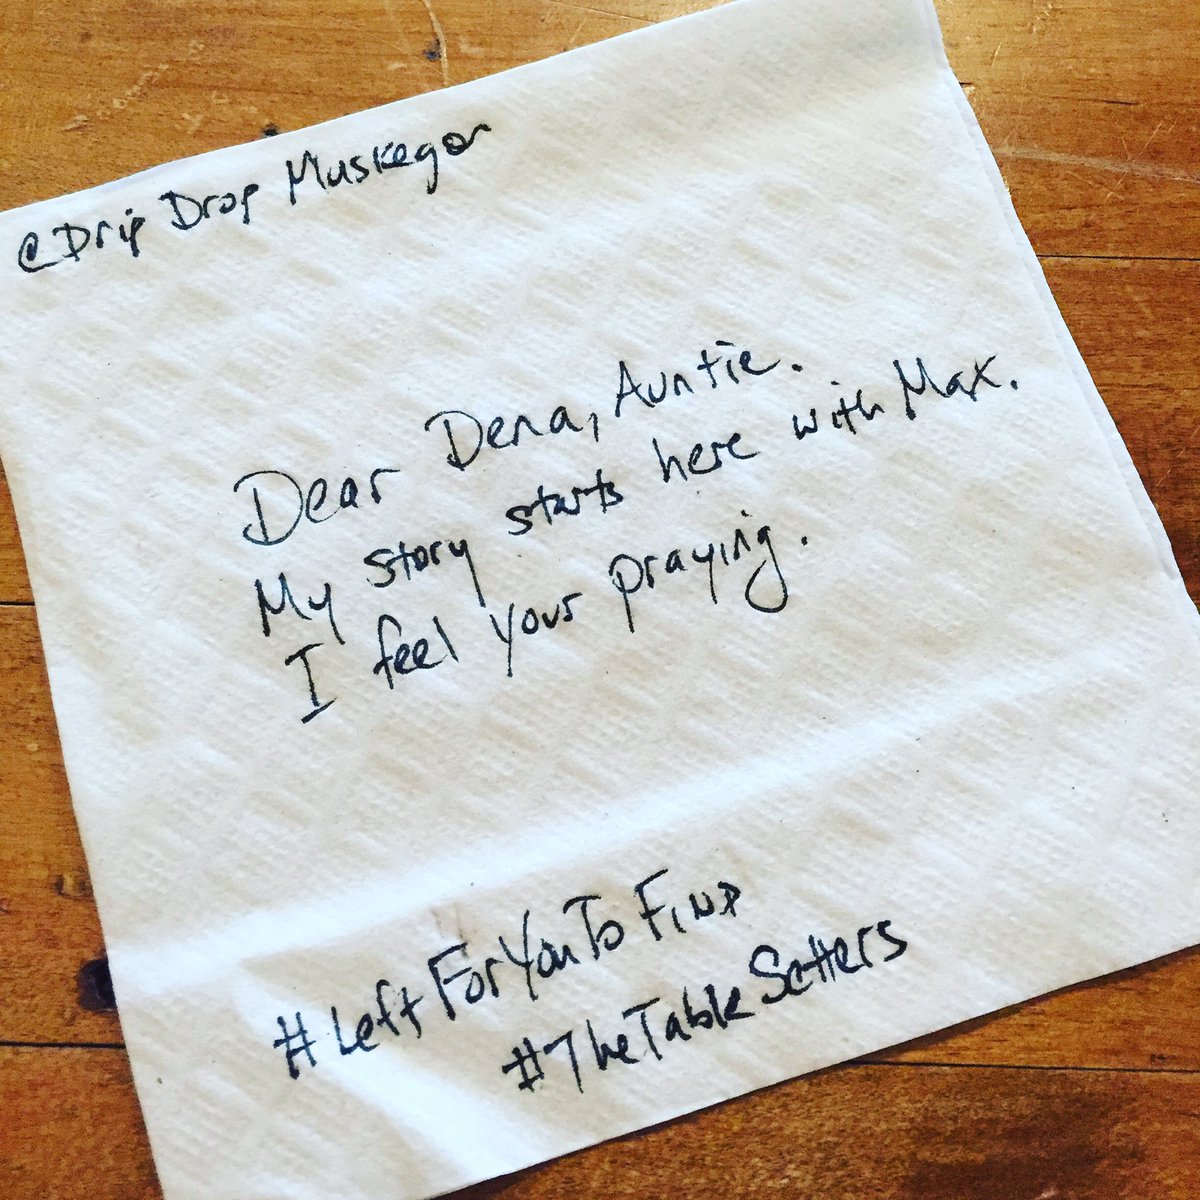 @Drip Drop Muskegon
Dear Dena, Auntie.
My story starts here with Max.
I feel your praying.
#LeftForYouToFind
#TheTableSetters